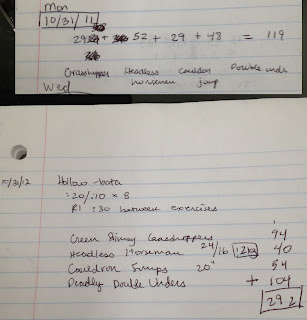 Mon
10/31/11
29 + 52 + 29 + 43 = 119
Grasshopper Headless Cauldron Double unders
horsemen jump
Wed
10/31/12 Hollow-bata
:20/:10 x 8
RI :30 between exercises
Green Slimey Grasshoppers 94
Headless Horseman 24/16 12kg 40
Cauldron Jumps 20" 54
Deadly Double Unders + 104
292